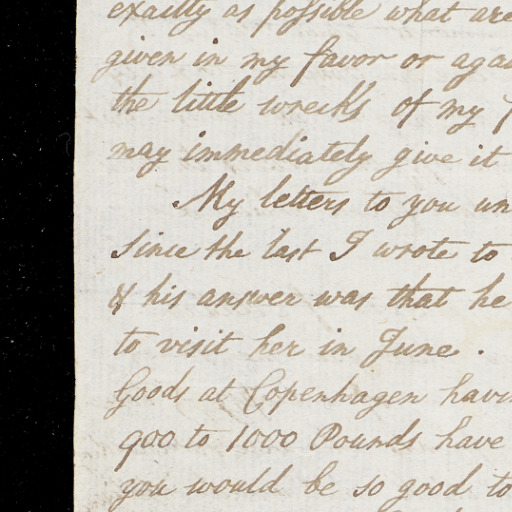 exactly as possible what are
given in my favor or agai
the little wrecks of my
may immediately give it
My letters to you un
Since the last I wrote to
& his answer was that he
to visit her in June.
Goods at Copenhagen havin
900 to 1000 Pounds have
you would be so good to